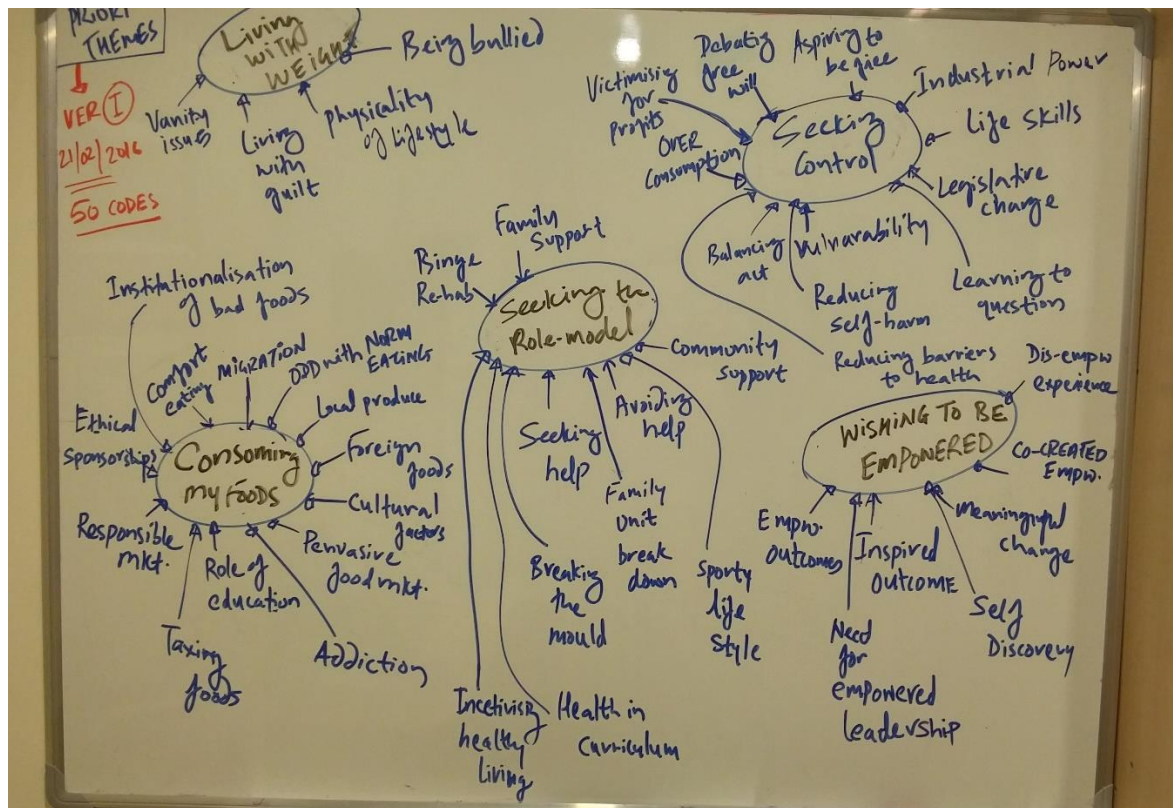 PRIORI
THEMES
VER I
21/02/2016
50 CODES
Living
WITH
WEIGHT
Being bullied
Vanity
issues
Living
with
guilt
Physicality
of lifestyle
Seeking
Control
Victimising
for
profits
Debating
free
will
Aspiring to
be free
Industrial Power
Life Skills
Legislative
change
Learning to
question
OVER
Consumption
Balancing
act
Vulnarability
Reducing
self-harm
Reducing barriers
to health
Seeking the
Role-model
Binge
Re-hab
Family
Support
Community
support
Seeking
help
Avoiding
help
Family
unit
break
down
Sporty
life
style
Breaking
the
mould
Incetivising
healthy
living
Health in
curriculum
Consuming
MY FOODS
Institutionalisation
of bad foods
Comfort
eating
MIGRATION
ODD with NORM
EATINGS
Local produce
Foreign
foods
Cultural
factors
Pervasive
food mkt.
Addiction
Role of
education
Taxing
foods
Responsible
mkt.
Ethical
sponsorships
WISHING TO BE
EMPOWERED
Dis-empw
experience
CO-CREATED
Empw.
Meaningful
change
Self
Discovery
Inspired
OUTCOME
Need
for
empowered
leadership
Empw.
outcomes